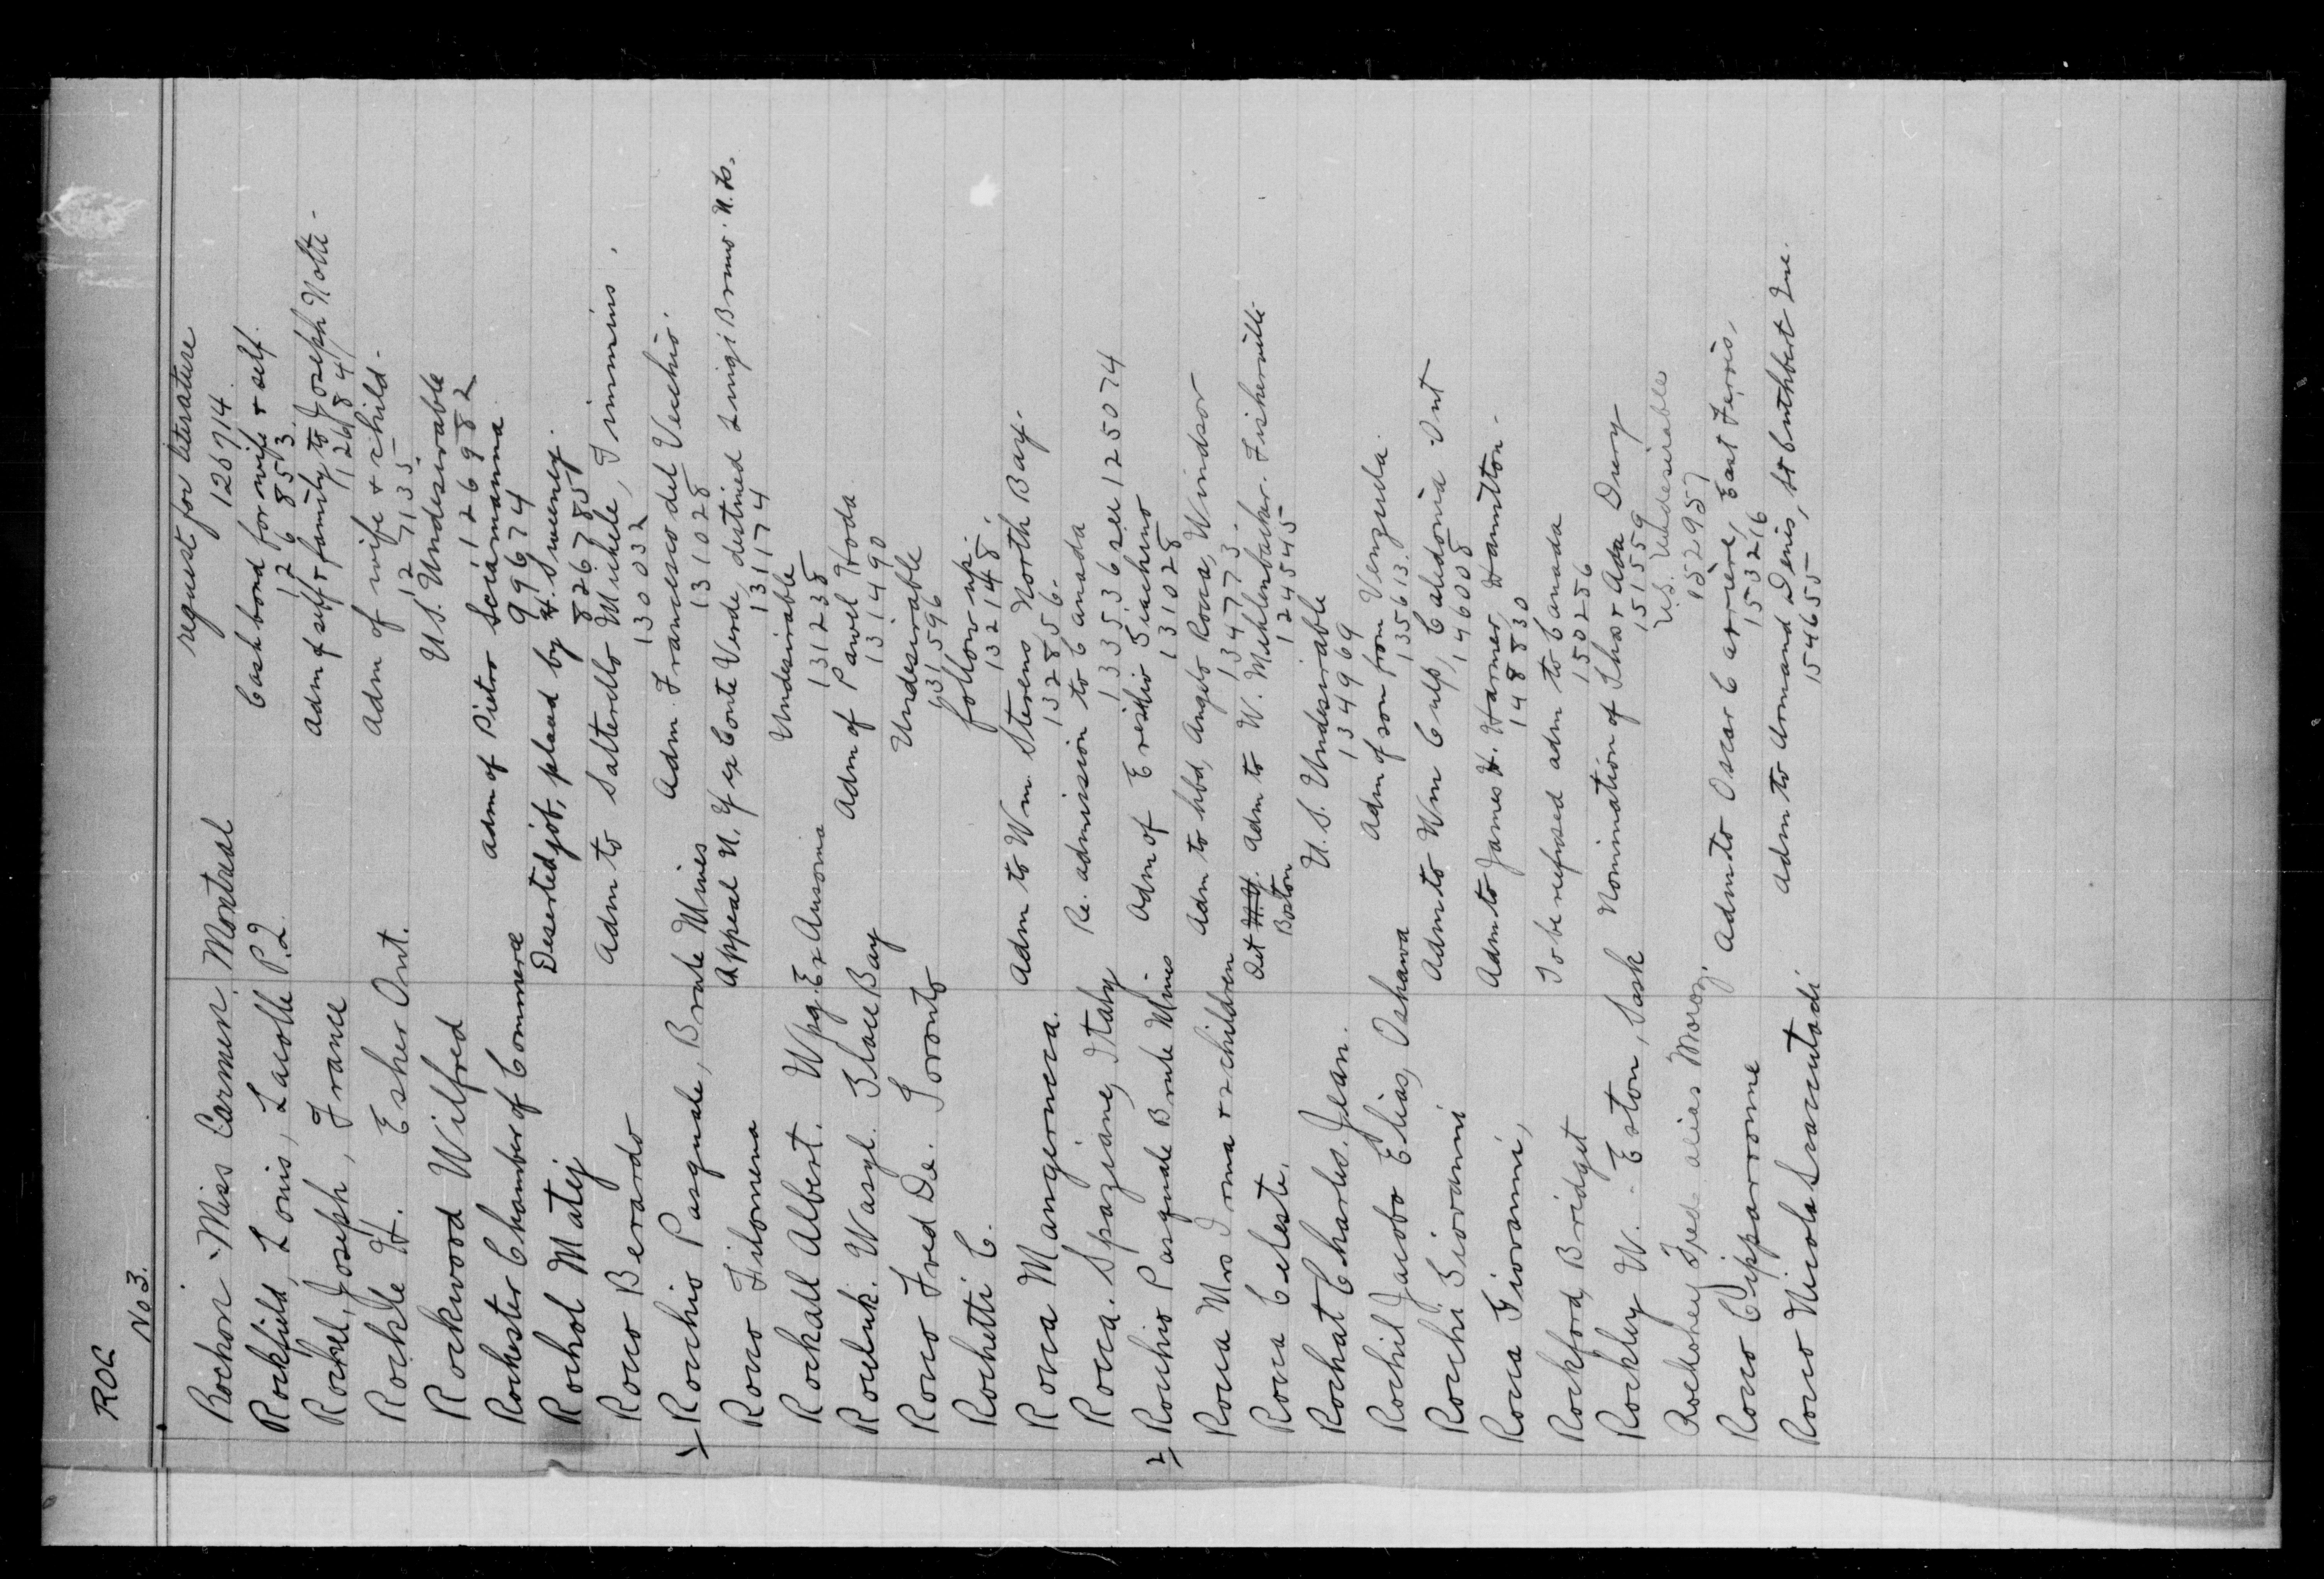 ROC
No 3.
Rochon Miss Carmen, Montreal request for literature
126714
Rockfield, Louis, Lacolle P.Q. Cash bond for wife & self.
126853
Rockel, Joseph, France Adm of self & family to Joseph Notte -
126184
Rockle H. Esher Ont. Adm of wife & child -
127135
Rockwood Wilfred U.S. Undesirable
126982
Rochester Chamber of Commerce adm of Pietro Sciamanna
99674
Rochol Matej Deserted job, placed by H. Sweeney.
826785
Rocco Berardo Adm to Satterello Michele, Timmins.
130032
Rocchio Pasquale, Brule Mines Adm. Francesco del Vecchio.
131028
Rocco Filomena Appeal N.Y ex Conte Verde, destined Luigi Bruno. N.B.
13174
Rockall Albert. Wpg. Ex Ausonia Undesirable
131238
Roculuk. Wasyl. Glace Bay Adm of Pawel Hoda
131490
Rocco Fred De. Toronto Undesirable
131596
Rochetti C. follow up.
132148.
Rocca Mangerucca. Adm to Wm. Stevens, North Bay.
132856.
Rocca. Spaziane, Italy Re. admission to Canada
133536 see 125074
Rocchio Pasquale Brule Mines Adm of Ersilio Giachino
131028
Rocca Mrs Irma & 2 children Adm to hbd, Angelo Rocca, Windsor
134773.
Rocca Celeste. Det N.Y. Adm to W. Mehlenbacher. Fisherville
Boston 124545
Rochat Charles. Jean. U.S. Undesirable
134969
Rochil Jacobo Elias, Oshawa Adm of son from Venzuela.
135613.
Rocchi Giovanni Adm to Wm Culp, Caledonia Ont
146008
Rocca Giovanni, Adm to James H. Harmer, Hamilton -
148830
Rockford, Bridget To be refused adm to Canada
150256
Rockley W. - Eston, Sask Nomination of Chas & Ada Drury
151559
Rockohey Fred alias Morozy. U.S. Undesirable
152957
Rocco Cipparrone Adm to Oscar Carriere, East Ferris,
153216
Rocco Nicola Adm to Armand Denis, St Cuthbert Que.
154655